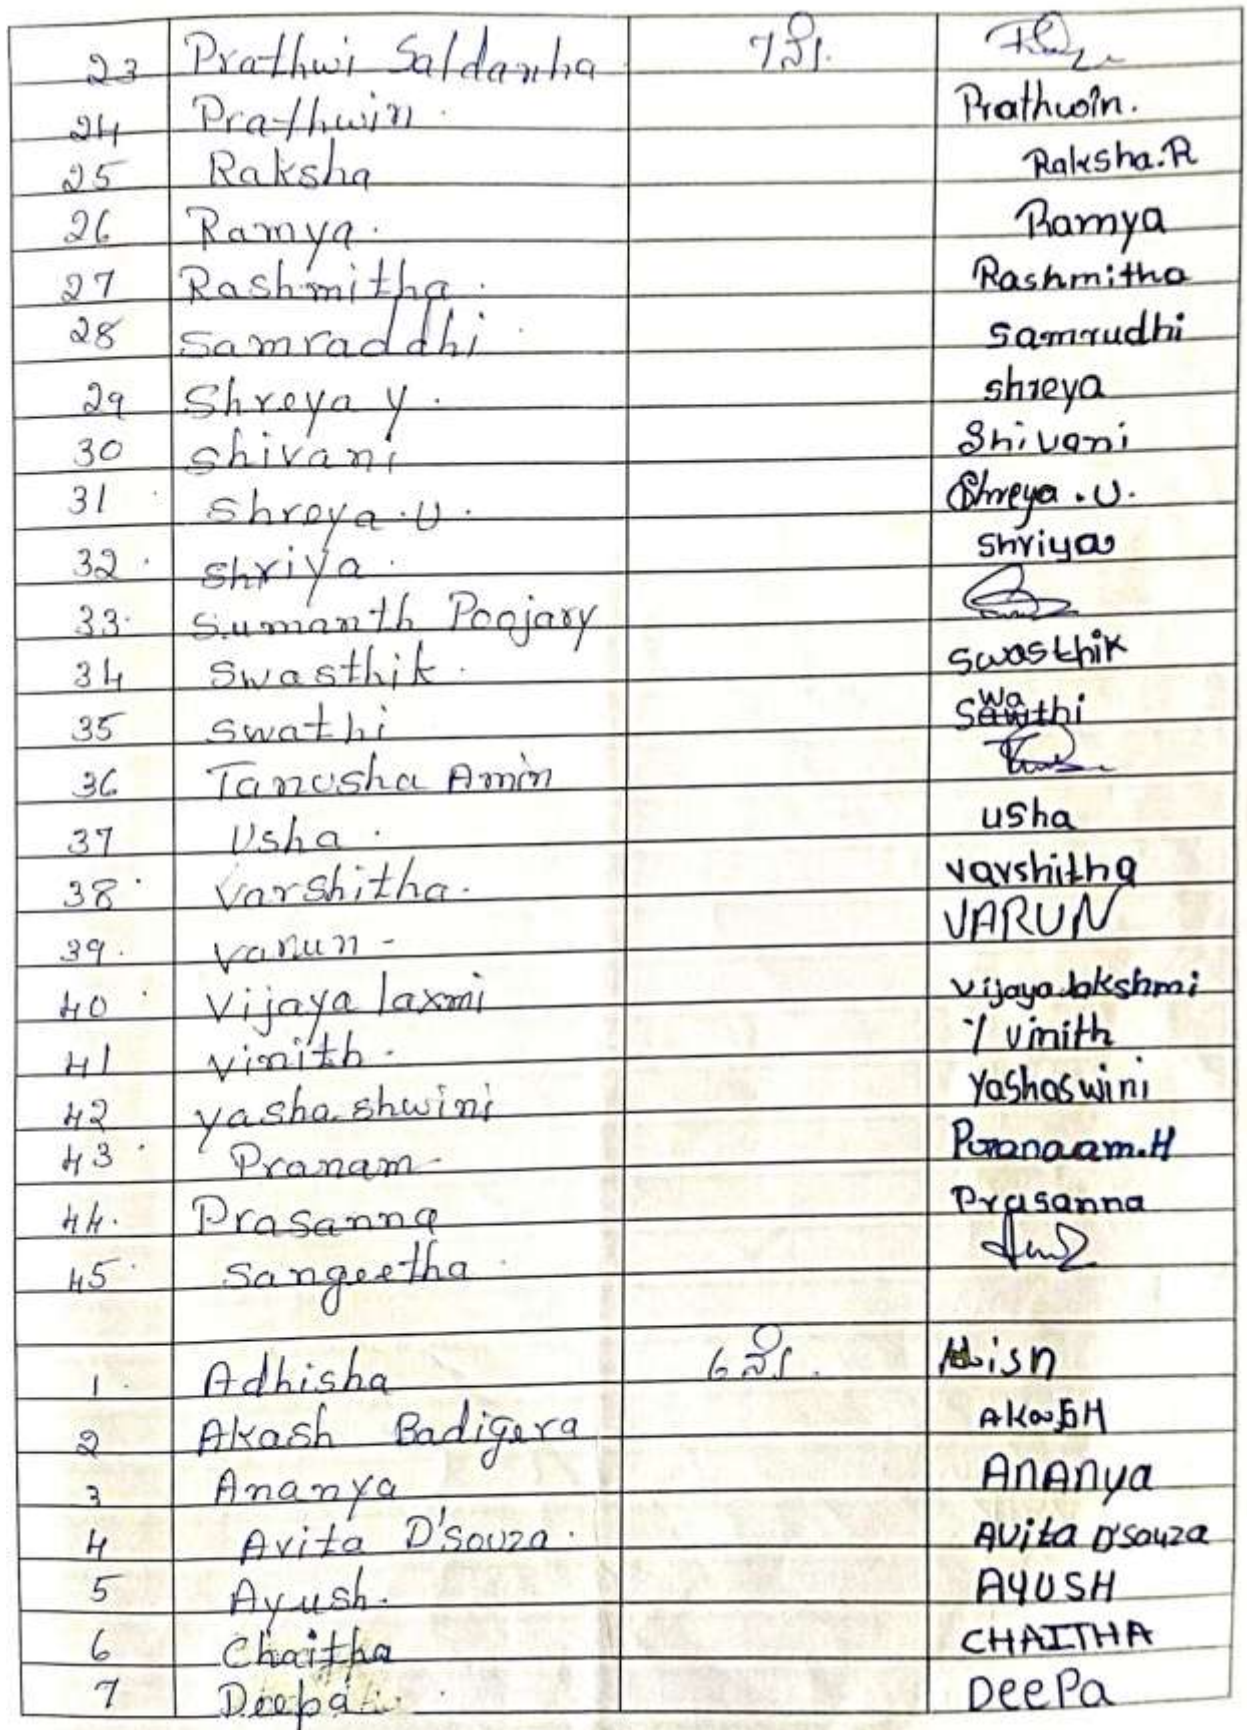 23 Prathwi Saldanha 7ನೇ.
24 Prathwin. Prathwin.
25 Raksha Raksha.R
26 Ramya. Ramya
27 Rashmitha. Rashmitha
28 Samraddhi. Samrudhi
29 Shreya y. shreya
30 shivani Shivani
31 shreya.U. Shreya.U.
32. shriya. shriya
33. Sumanth Poojary
34 Swasthik. swasthik
35 Swathi
36 Tanusha Amin
37 Usha. usha
38. Varshitha. varshitha
39. varun- VARUN
40. Vijaya laxmi vijaya lakshmi
41 vinith- vinith
42 yasha shwini Yashaswini
43. Pranam- Pranaam.H
44. Prasanna Prasanna
45. Sangeetha.
1. Adhisha 6ನೇ.
2 Akash Badigera AKASH
3 Ananya ANANya
4 Avita D'Souza. Avita D'souza
5 Ayush. AYUSH
6 Chaitha CHAITHA
7 Deepa. DeePa